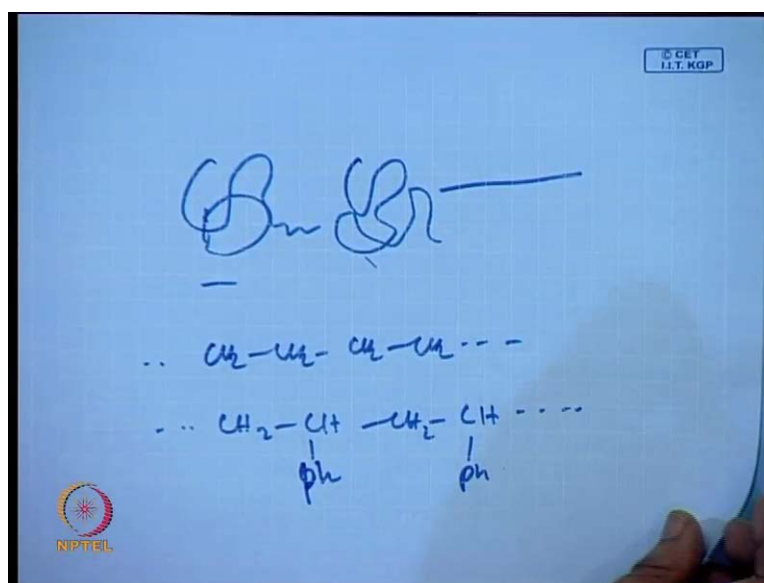 © CET
I.I.T. KGP
.. CH2-CH2- CH2-CH2 --- -
- .. CH2-CH-CH2-CH ----
ph ph
NPTEL